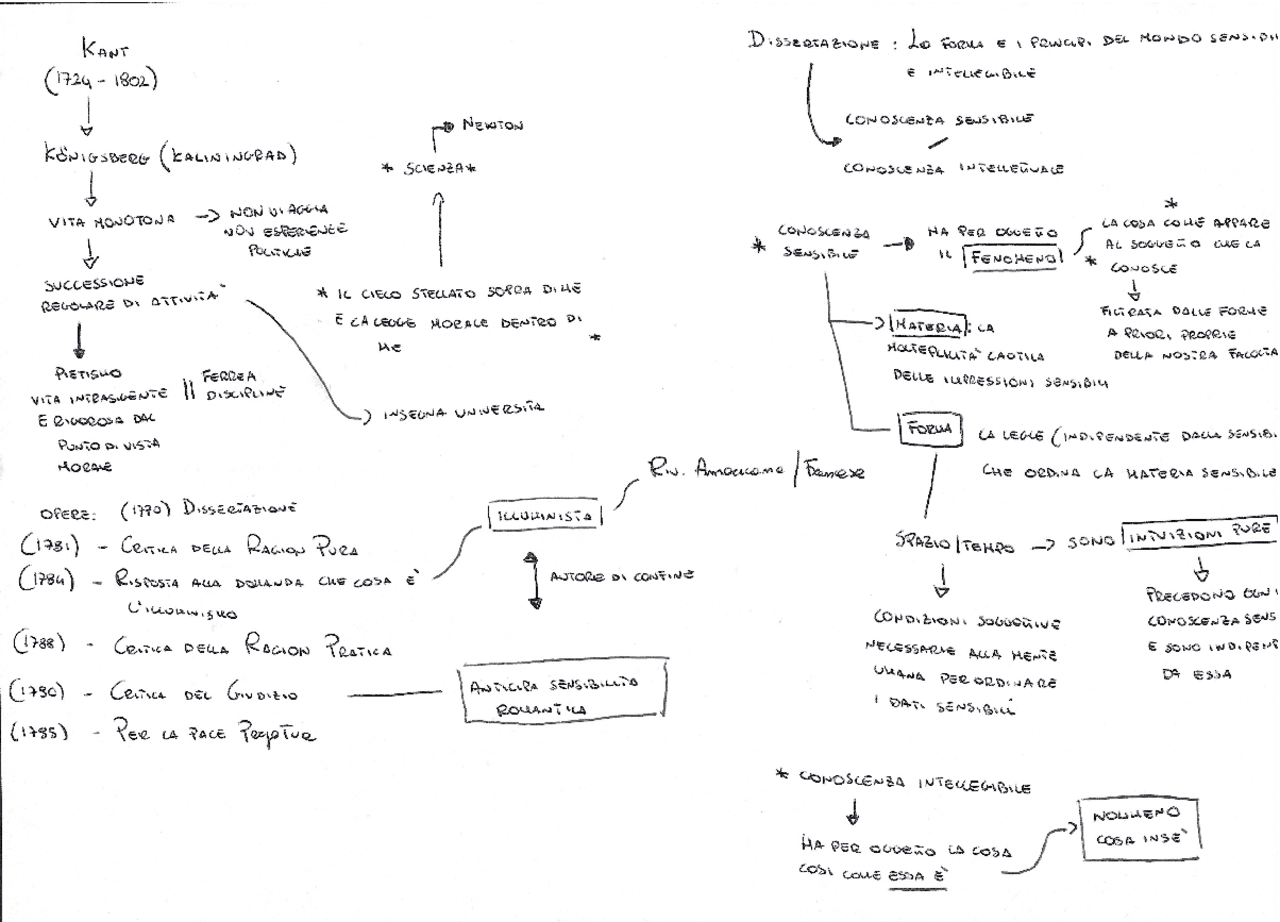 KANT
(1724 - 1802)
KÖNIGSBERG (KALININGRAD)
VITA MONOTONA → NON VIAGGIA
NON ESPERIENZE
POLITICHE
SUCCESSIONE
REGOLARE DI ATTIVITÀ
PIETISMO
VITA INTRASIGENTE
E RIGOROSA DAL
PUNTO DI VISTA
MORALE
|| FERREA
DISCIPLINE
NEWTON
* SCIENZA *
* IL CIELO STELLATO SOPRA DI ME
E LA LEGGE MORALE DENTRO DI
ME *
INSEGNA UNIVERSITÀ
OPERE: (1770) DISSERTAZIONE
(1781) - CRITICA DELLA RAGION PURA
(1784) - RISPOSTA ALLA DOMANDA CHE COSA È
L'ILLUMINISMO
(1788) - CRITICA DELLA RAGION PRATICA
(1790) - CRITICA DEL GIUDIZIO
(1795) - PER LA PACE PERPETUA
RIV. AMERICANA / FRANCESE
ILLUMINISTA
AUTORE DI CONFINE
ANTICIPA SENSIBILITÀ
ROMANTICA
DISSERTAZIONE : LA FORMA E I PRINCIPI DEL MONDO SENSIBI
E INTELLEGIBILE
CONOSCENZA SENSIBILE
/
CONOSCENZA INTELLETTUALE
* CONOSCENZA
SENSIBILE
HA PER OGGETTO
IL FENOMENO
*
LA COSA COME APPARE
AL SOGGETTO CHE LA
* CONOSCE
FILTRATA DALLE FORME
A PRIORI PROPRIE
DELLA NOSTRA FACOLTÀ
MATERIA: LA
MOLTEPLICITÀ CAOTICA
DELLE IMPRESSIONI SENSIBILI
FORMA LA LEGGE (INDIPENDENTE DALLA SENSIBI
CHE ORDINA LA MATERIA SENSIBILE
SPAZIO/TEMPO → SONO INTUIZIONI PURE
CONDIZIONI SOGGETTIVE
NECESSARIE ALLA MENTE
UMANA PER ORDINARE
I DATI SENSIBILI
PRECEDONO OGNI
CONOSCENZA SENS
E SONO INDIPEN
DA ESSA
* CONOSCENZA INTELLEGIBILE
HA PER OGGETTO LA COSA
COSÌ COME ESSA È
NOUMENO
COSA IN SÉ